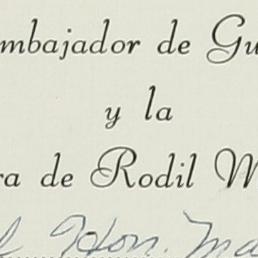 mbajador de Gu
y la
ra de Rodil M
Hon. Ma